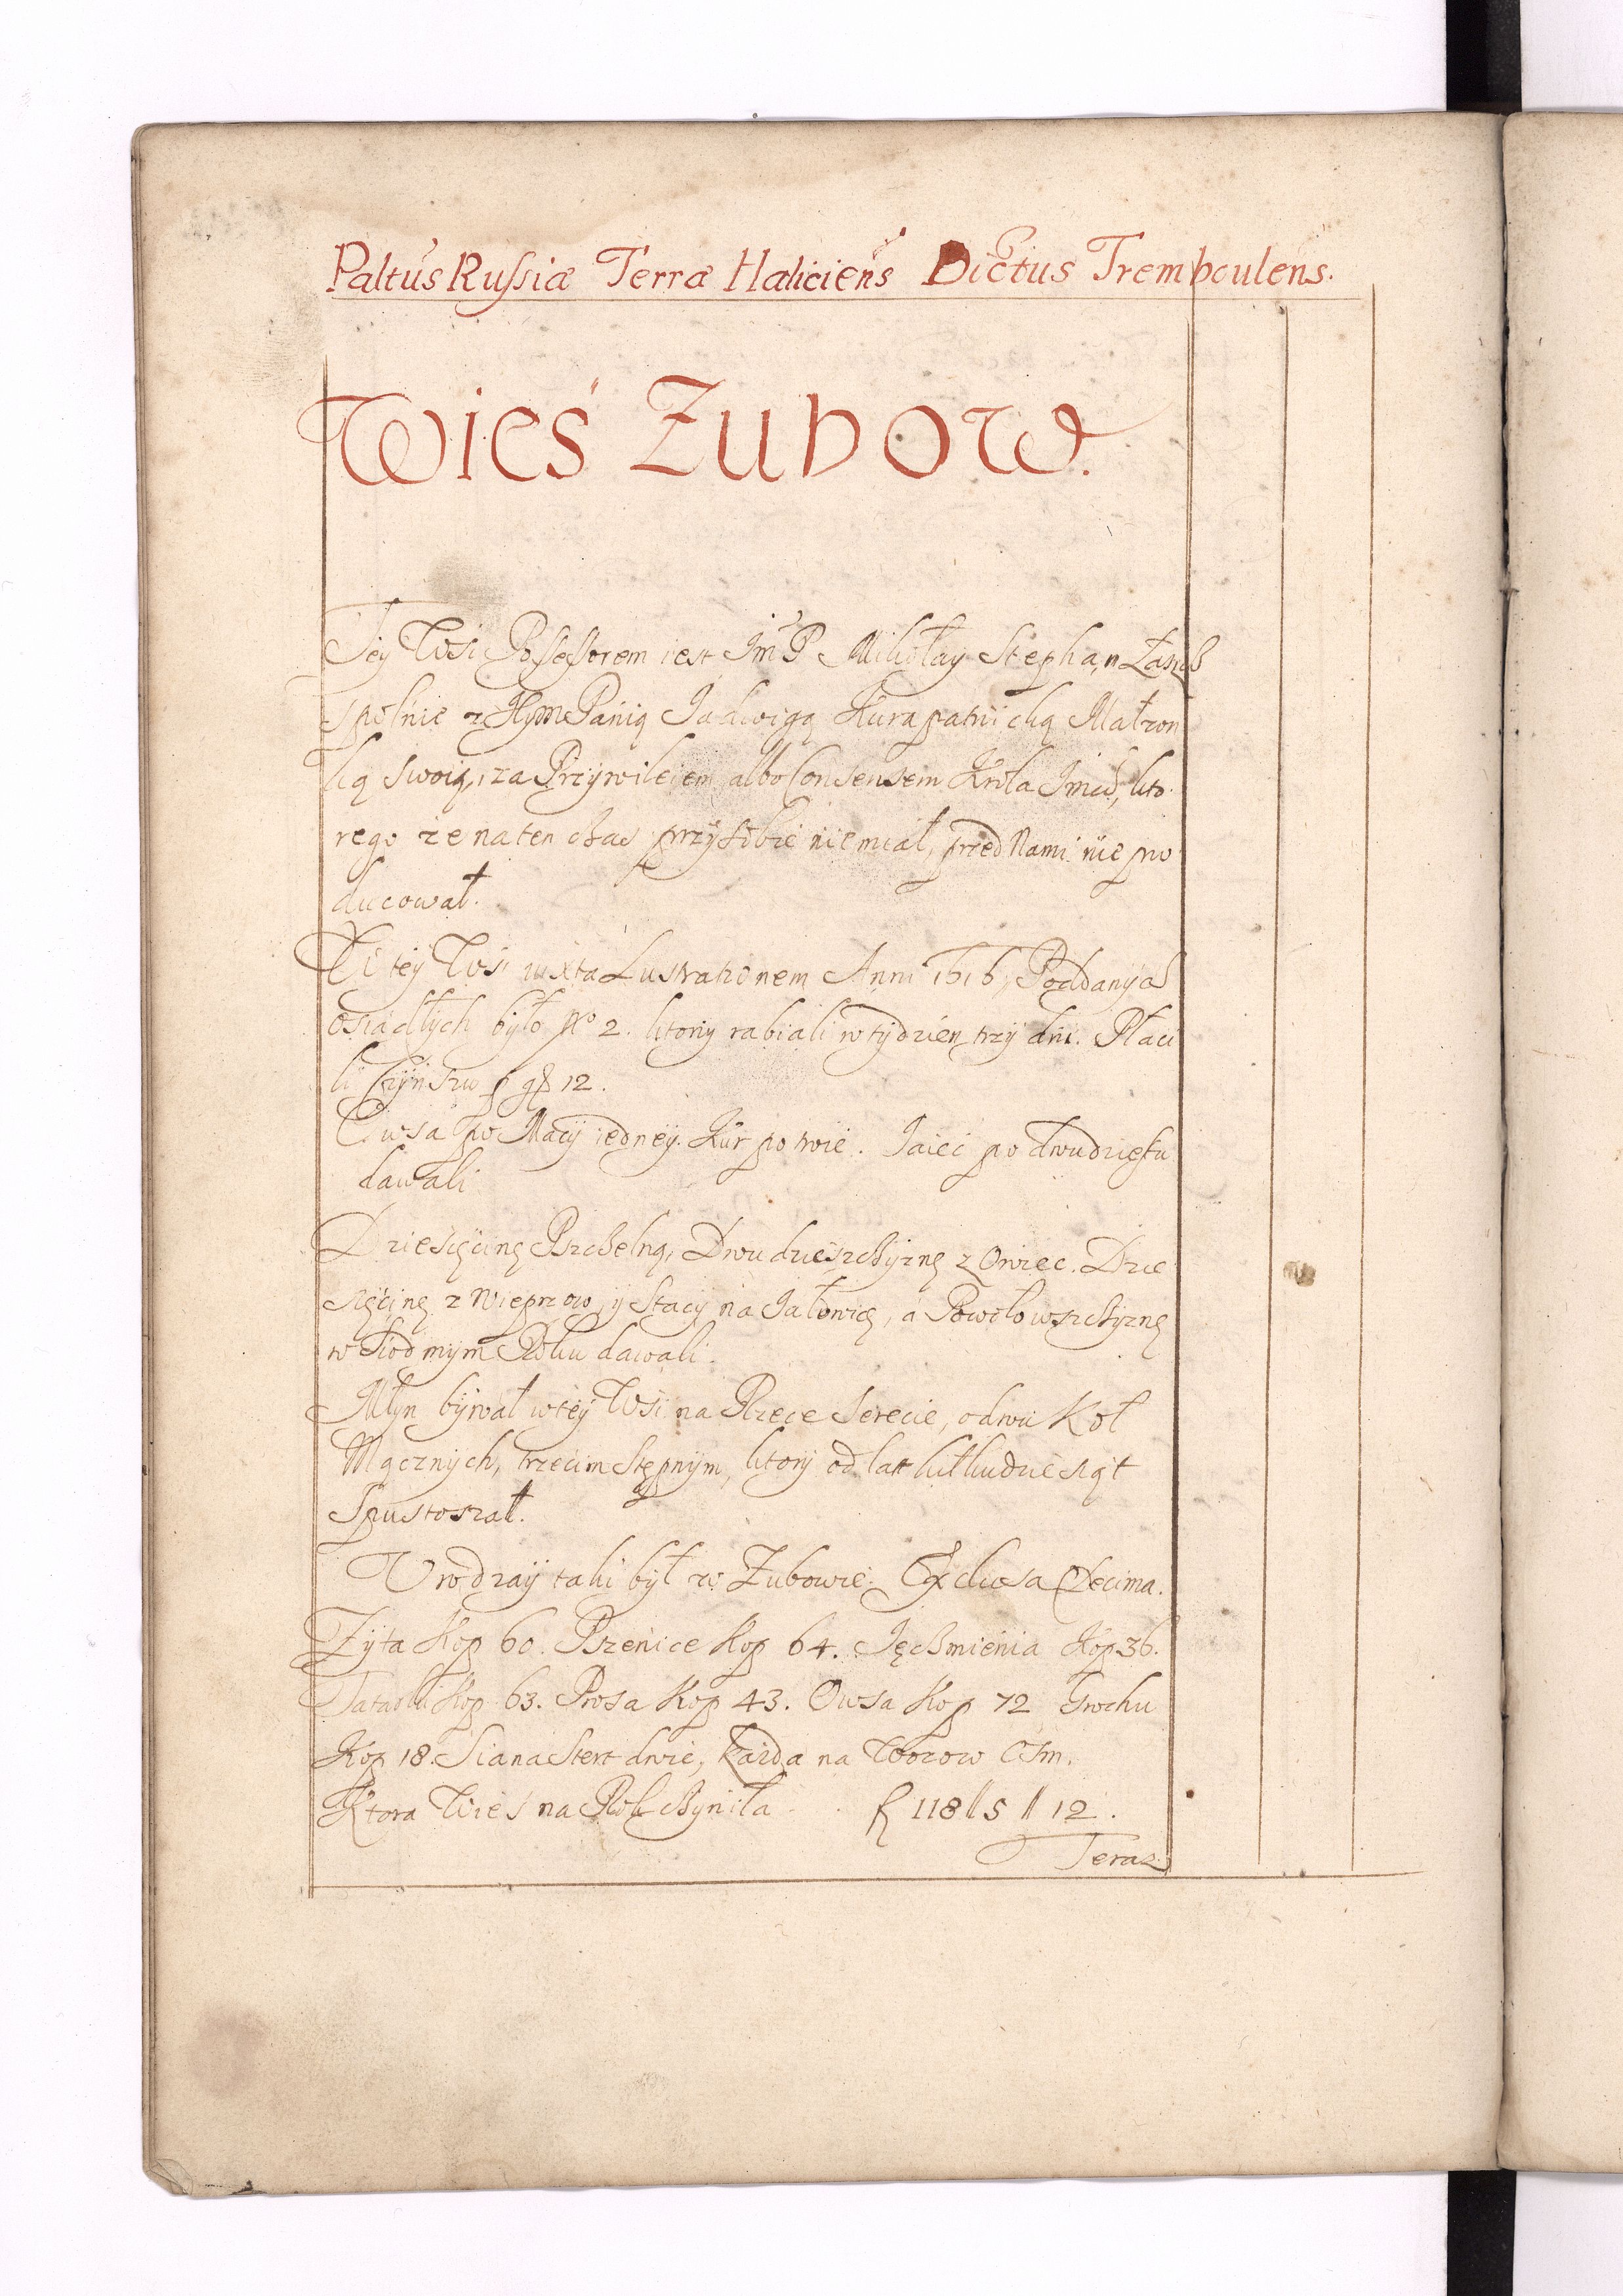 Paltus Russiæ Terræ Haliciens Dictus Tremboulens.
Wieś Zubow.
Tey Wsi Possessorem iest Jm P Mikołay Stephan Łasz
spolnie z Jeym Panią Jadwigą Kurapatnicką Małzon
ką swoią, za Przywileiem albo Consensem Krola Jmci, kto
rego ze naten czas przy sobie nie miał, przed Nami nie pro
ducował.
W tey Wsi iuxta Lustrationem Anni 1616, Poddanych
osiadłych było No 2. ktory rabiali w tydzien trzy dni. Płaci
li Czynszu f gr 12.
Owsa po Macy iedney. Kur po troie. Jaiec po dwudziestu
dawali
Dziesięcinę Pszczelną, Dwudzieszczyznę z Owiec. Dzie
sięcinę z Wieprzow, y Stacy na Jałowicę, a Powołowszczyznę
w Siodmym Roku dawali.
Młyn bywał w tey Wsi na Rzece Serecie, o dwu Koł
Mącznych, trzecim Stępnym, ktory od lat kilkudziesiąt
Spustoszał.
Urodzay taki był w Zubowie. Exclusa Decima.
Zyta Kop 60. Pszenice Kop 64. Jęczmienia Kop 36.
Tatarki Kop 63. Prosa Kop 43. Owsa Kop 72 Grochu
Kop 18. Siana Stert dwie, kazda na Wozow Osm.
Ktora Wies na Rok czyniła f 118 // 5 // 12.
Teraz